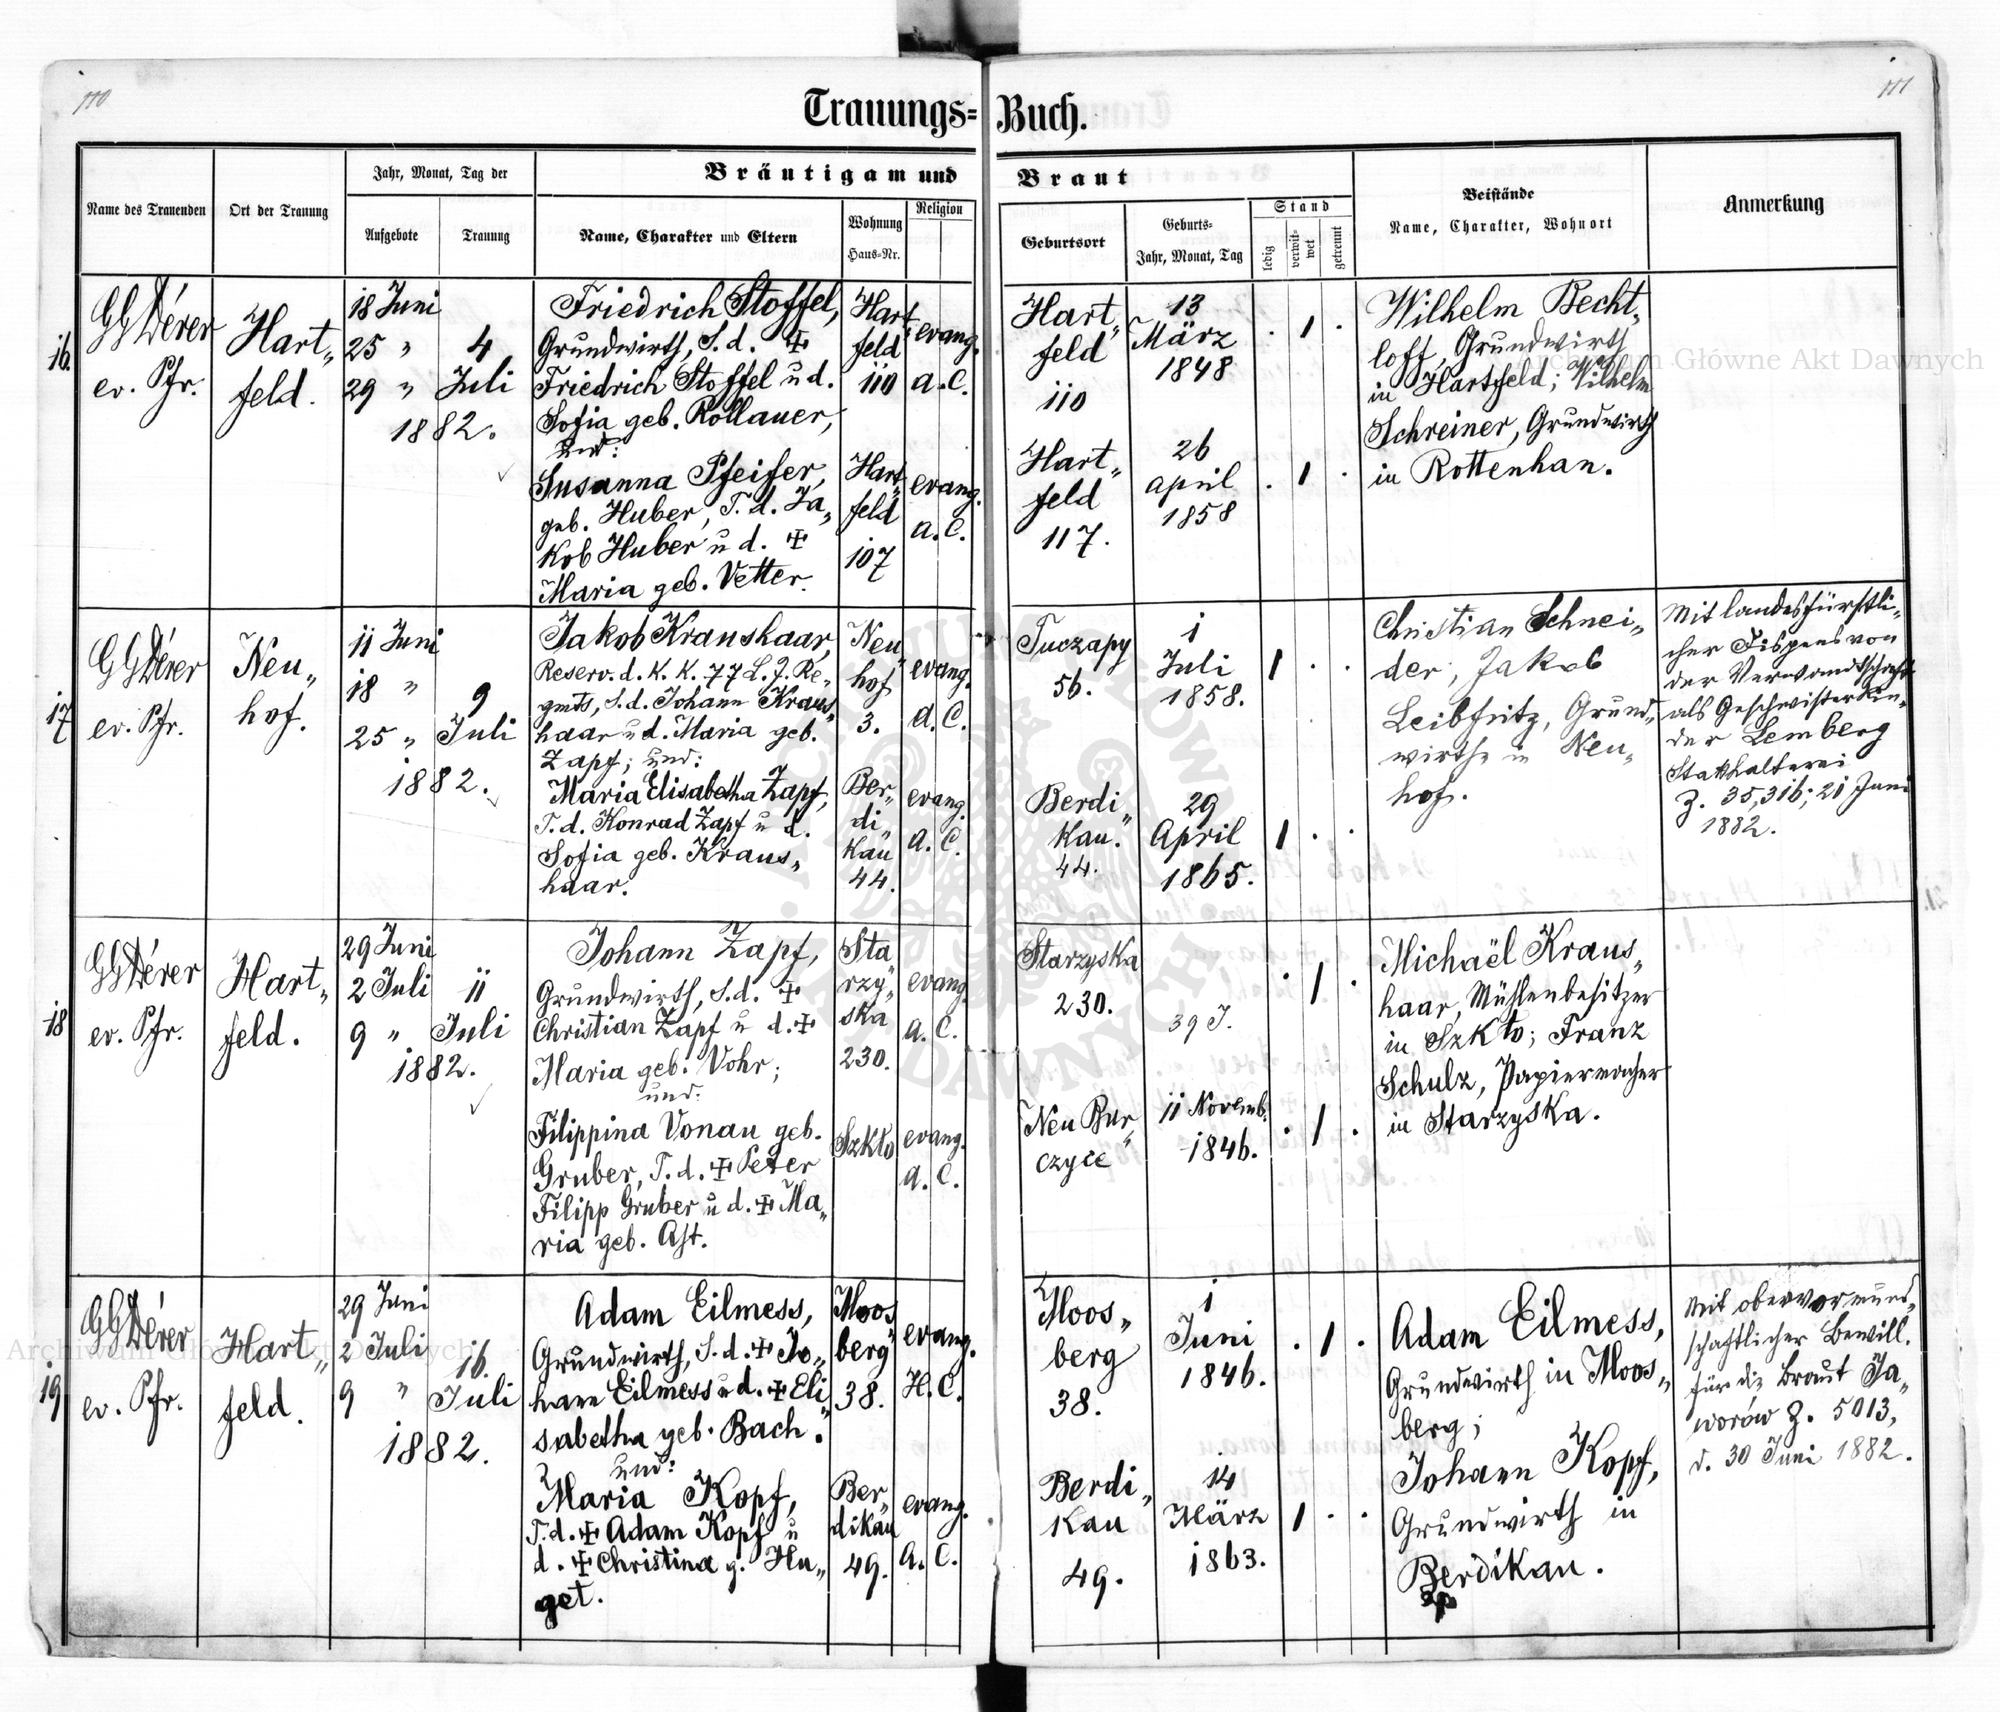 110
111
Trauungs= Buch.
Name des Trauenden
Ort der Trauung
Jahr, Monat, Tag der
Aufgebote
Trauung
Bräutigam und Braut
Name, Charakter und Eltern
Wohnung
Haus=Nr.
Religion
Geburtsort
Geburts=
Jahr, Monat, Tag
Stand
ledig
verwit-
wet
getrennt
Beistände
Name, Charakter, Wohnort
Anmerkung
16.
GGDérer
ev. Pfr.
Hart„
feld.
18 Juni
25 „
29 „
4
Juli
1882.
Friedrich Stoffel,
Grundwirth, S. d. ✠
Friedrich Stoffel u d.
Sofia geb. Rollauer,
und:
Susanna Pfeifer,
geb. Huber, T. d. Ja„
kob Huber u d. ✠
Maria geb. Vetter.
Hart„
feld
110
Hart„
feld
107
evang.
a. C.
evang.
a. C.
Hart„
feld
110
Hart„
feld
117.
13
März
1848
26
april
1858
. 1 .
. 1 .
Wilhelm Becht„
loff, Grundwirth
in Hartfeld; Wilhelm
Schreiner, Grundwirth
in Rottenhan.
17
GGDérer
ev. Pfr.
Neu„
hof.
11 Juni
18 „
25 „
9
Juli
1882.
Jakob Kraushaar,
Reserv. d. K. K. 77 L. J. Re„
gmts, S. d. Johann Kraus„
haar u d. Maria geb.
Zapf; und:
Maria Elisabetha Zapf,
T. d. Konrad Zapf u d.
Sofia geb. Kraus„
haar.
Neu„
hof
3.
Ber„
di„
kau
44.
evang.
a. C.
evang.
a. C.
Tuczapy
56.
Berdi„
kau.
44.
1
Juli
1858.
29
April
1865.
1 . .
1 . .
Christian Schnei„
der, Jakob
Leibfritz, Grund„
wirthe in Neu„
hof.
Mit landesfürstli„
cher Dispens von
der Verwandtschaft
als Geschwisterkin„
der Lemberg
Statthalterei
Z. 35,316; 21 Juni
1882.
18
GGDérer
ev. Pfr.
Hart„
feld.
29 Juni
2 Juli
9 „
11
Juli
1882.
Johann Zapf,
Grundwirth, S. d. ✠
Christian Zapf u d. ✠
Maria geb. Vohr;
und:
Filippina Vonau geb.
Gruber, T. d. ✠ Peter
Filipp Gruber u d. ✠ Ma„
ria geb. Ast.
Sta
rzy„
ska
230.
Szkło
evang.
a. C.
evang.
a. C.
Starzyska
230.
Neu Bur„
czyce
39 J.
11 Novemb.
1846.
. 1 .
. 1 .
Michaël Kraus„
haar, Mühlenbesitzer
in Szkło; Franz
Schulz, Papiermacher
in Starzyska.
19
GGDérer
ev. Pfr.
Hart„
feld.
29 Juni
2 Juli
9 „
16.
Juli
1882.
Adam Eilmess,
Grundwirth, S. d. ✠ Jo„
hann Eilmess u d. ✠ Eli„
sabetha geb. Bach.
und:
Maria Kopf,
T. d. ✠ Adam Kopf u
d. ✠ Christina g. Hu„
get.
Moos„
berg
38.
Ber„
dikau
49.
evang.
H. C.
evang.
A. C.
Moos„
berg
38.
Berdi„
kau
49.
1
Juni
1846.
14
März
1863.
. 1 .
1 . .
Adam Eilmess,
Grundwirth in Moos„
berg;
Johann Kopf,
Grundwirth in
Berdikau.
Mit obervormund„
schaftlicher Bewill.
für die Braut Ja„
worów Z. 5013,
d. 30 Juni 1882.
Archiwum Główne Akt Dawnych
Archiwum Główne Akt Dawnych
ARCHIWUM GŁÓWNE AKT DAWNYCH